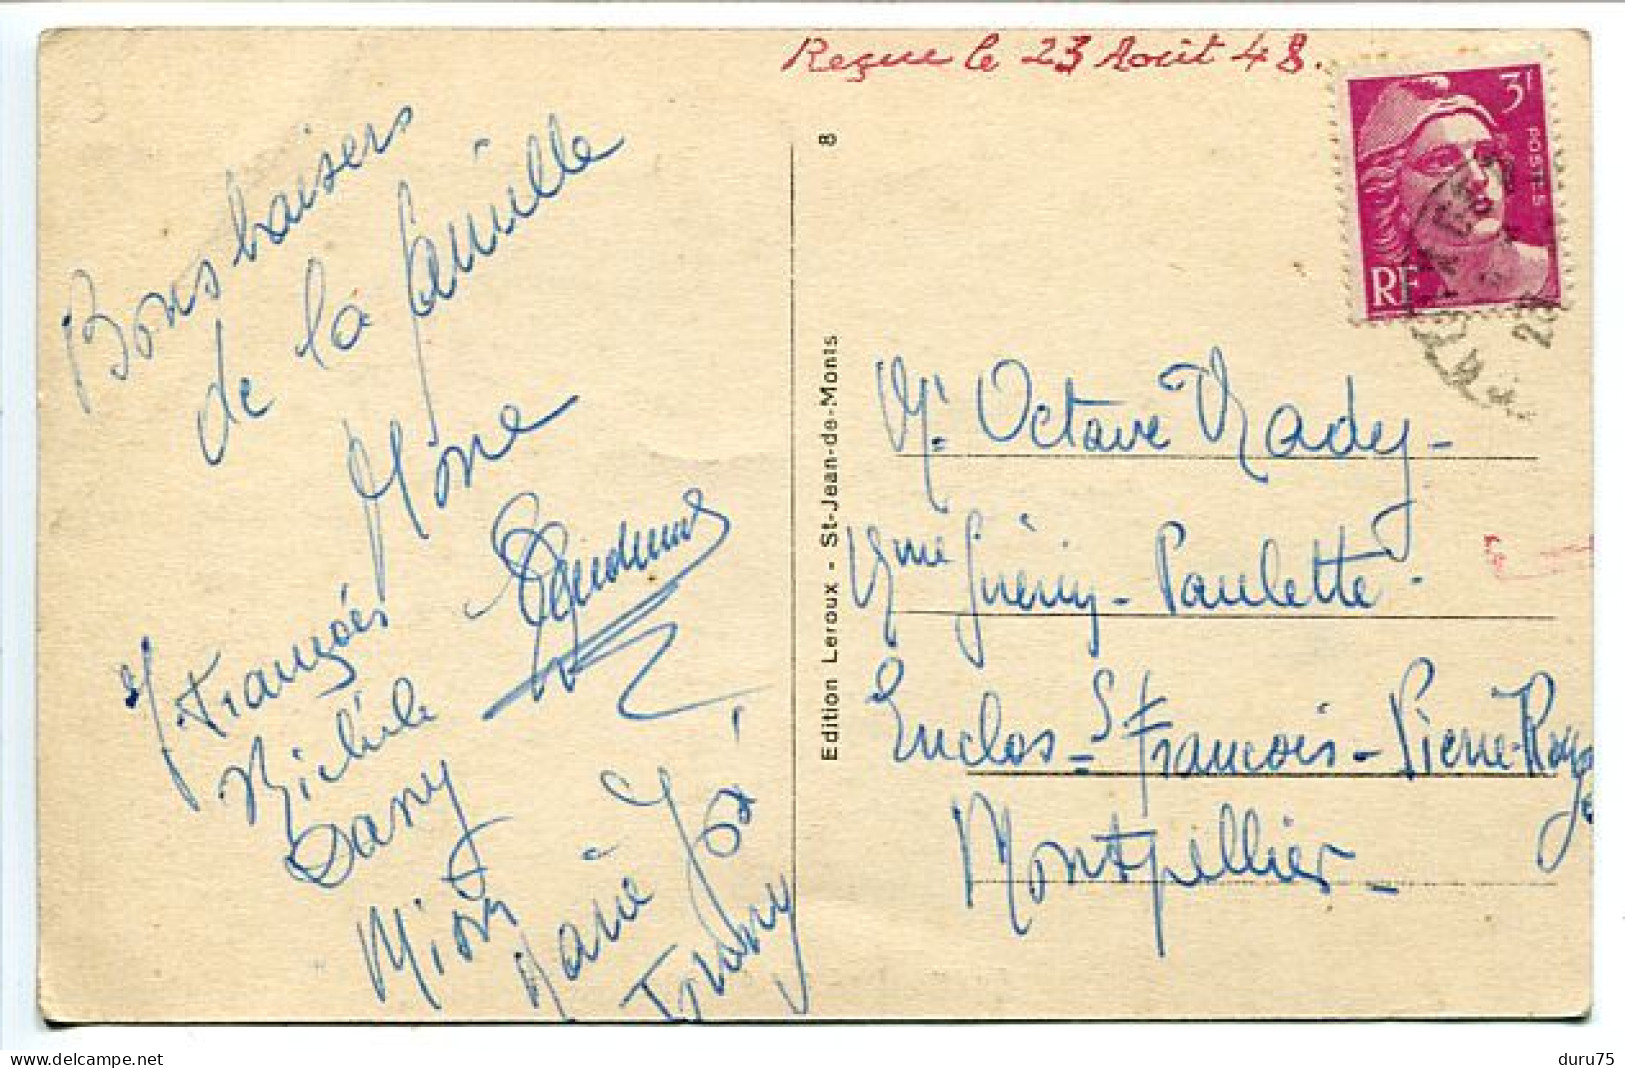 Reçue le 23 Août 48.
Bons baisers
de la famille
Mône
J. François
Michèle
Dany
Mion
Marie Jo
8
Edition Leroux - St-Jean-de-Monts
3F
POSTES
RF
Mr. Octave Rady -
Mme Guériny - Paulette -
Enclos - St François - Pierre-Rouge
Montpellier -
duru75